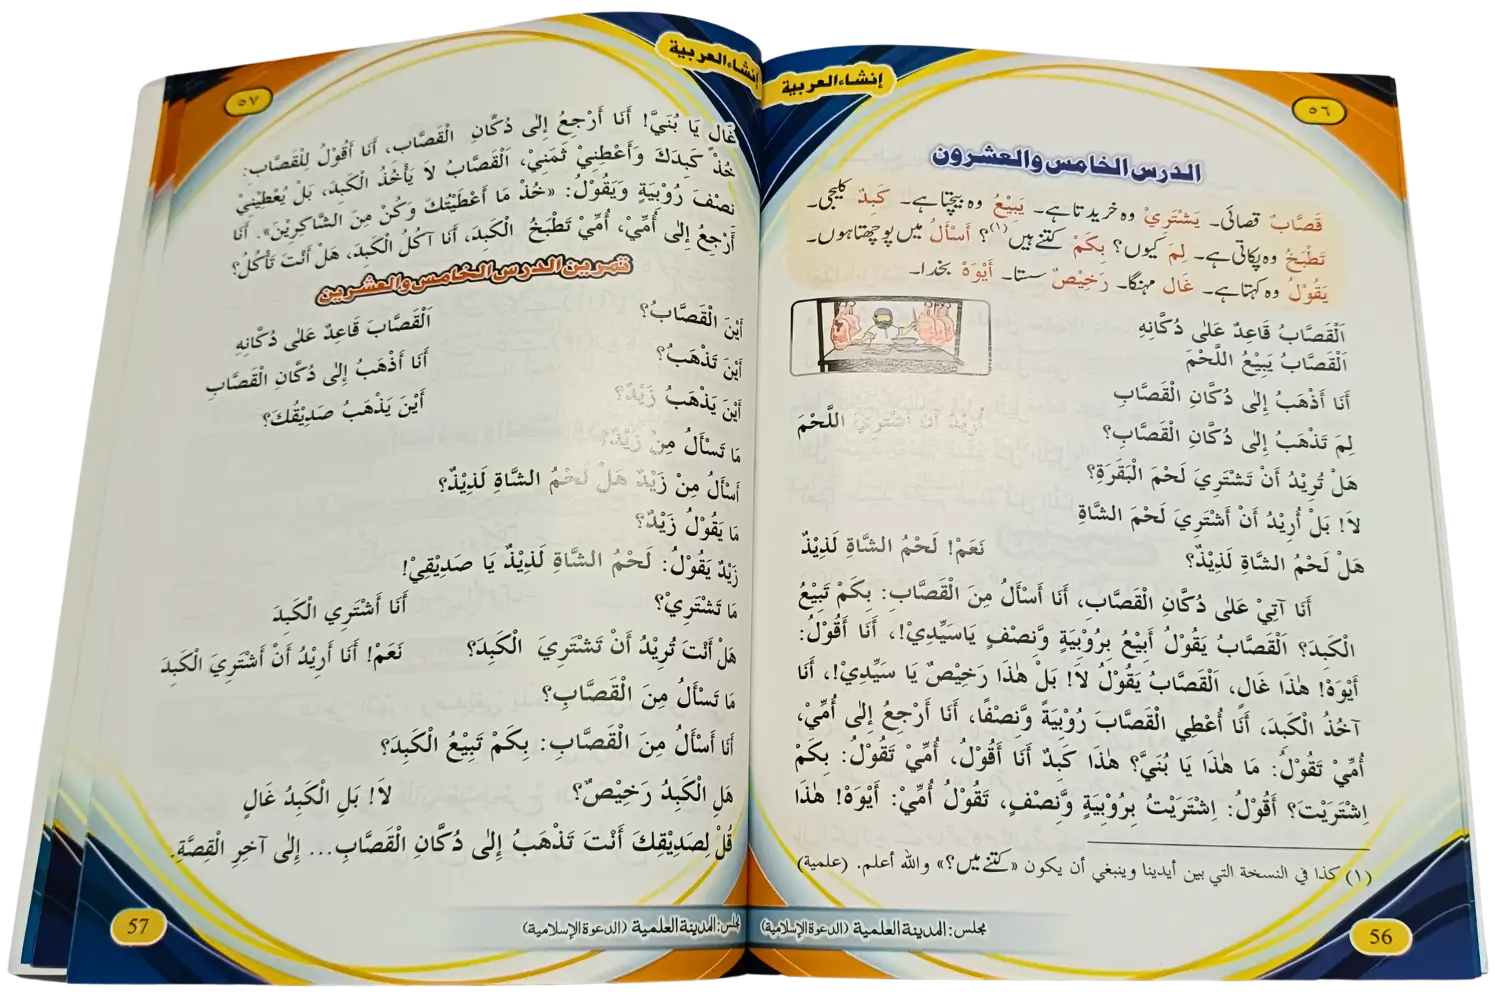 إنشاء العربية
٥٦
الدرس الخامس والعشرون
قَصَّابٌ قصائی۔ يَشْتَرِيْ وہ خریدتا ہے۔ يَبِيْعُ وہ بیچتا ہے۔ كَبِدٌ کلیجی۔
تَطْبَخُ وہ پکاتی ہے۔ لِمَ کیوں؟ بِكَمْ کتنے ہیں(۱)؟ أَسْأَلُ میں پوچھتا ہوں۔
يَقُوْلُ وہ کہتا ہے۔ غَالٍ مہنگا۔ رَخِيْصٌ سستا۔ أَيْوَهْ بخدا۔
اَلْقَصَّابُ قَاعِدٌ عَلٰى دُكَّانِهِ
اَلْقَصَّابُ يَبِيْعُ اللَّحْمَ
أَنَا أَذْهَبُ إِلٰى دُكَّانِ الْقَصَّابِ
لِمَ تَذْهَبُ إِلٰى دُكَّانِ الْقَصَّابِ؟ أُرِيْدُ أَنْ أَشْتَرِيَ اللَّحْمَ
هَلْ تُرِيْدُ أَنْ تَشْتَرِيَ لَحْمَ الْبَقَرَةِ؟
لاَ! بَلْ أُرِيْدُ أَنْ أَشْتَرِيَ لَحْمَ الشَّاةِ
هَلْ لَحْمُ الشَّاةِ لَذِيْذٌ؟ نَعَمْ! لَحْمُ الشَّاةِ لَذِيْذٌ
أَنَا آتِيْ عَلٰى دُكَّانِ الْقَصَّابِ، أَنَا أَسْأَلُ مِنَ الْقَصَّابِ: بِكَمْ تَبِيْعُ
الْكَبِدَ؟ اَلْقَصَّابُ يَقُوْلُ أَبِيْعُ بِرُوْبِيَةٍ وَّنِصْفٍ يَاسَيِّدِيْ!، أَنَا أَقُوْلُ:
أَيْوَهْ! هٰذَا غَالٍ، اَلْقَصَّابُ يَقُوْلُ لاَ! بَلْ هٰذَا رَخِيْصٌ يَا سَيِّدِيْ!، أَنَا
آخُذُ الْكَبِدَ، أَنَا أُعْطِي الْقَصَّابَ رُوْبِيَةً وَّنِصْفًا، أَنَا أَرْجِعُ إِلٰى أُمِّيْ،
أُمِّيْ تَقُوْلُ: مَا هٰذَا يَا بُنَيَّ؟ هٰذَا كَبِدٌ أَنَا أَقُوْلُ، أُمِّيْ تَقُوْلُ: بِكَمْ
اِشْتَرَيْتَ؟ أَقُوْلُ: اِشْتَرَيْتُ بِرُوْبِيَةٍ وَّنِصْفٍ، تَقُوْلُ أُمِّيْ: أَيْوَهْ! هٰذَا
(١) كذا في النسخة التي بين أيدينا وينبغي أن يكون «کتنے میں؟» والله أعلم. (علمية)
مجلس: المدينة العلمية (الدعوة الإسلامية)
56
إنشاء العربية
٥٧
غَالٍ يَا بُنَيَّ! أَنَا أَرْجِعُ إِلٰى دُكَّانِ الْقَصَّابِ، أَنَا أَقُوْلُ لِلْقَصَّابِ:
خُذْ كَبِدَكَ وَأَعْطِنِيْ ثَمَنِيْ، اَلْقَصَّابُ لاَ يَأْخُذُ الْكَبِدَ، بَلْ يُعْطِيْنِيْ
نِصْفَ رُوْبِيَةٍ وَيَقُوْلُ: «خُذْ مَا أَعْطَيْتُكَ وَكُنْ مِنَ الشَّاكِرِيْنَ». أَنَا
أَرْجِعُ إِلٰى أُمِّيْ، أُمِّيْ تَطْبَخُ الْكَبِدَ، أَنَا آكُلُ الْكَبِدَ، هَلْ أَنْتَ تَأْكُلُ؟
تمرين الدرس الخامس والعشرين
أَيْنَ الْقَصَّابُ؟ اَلْقَصَّابَ قَاعِدٌ عَلٰى دُكَّانِهِ
أَيْنَ تَذْهَبُ؟ أَنَا أَذْهَبُ إِلٰى دُكَّانِ الْقَصَّابِ
أَيْنَ يَذْهَبُ زَيْدٌ؟ أَيْنَ يَذْهَبُ صَدِيْقُكَ؟
مَا تَسْأَلُ مِنْ زَيْدٍ؟
أَسْأَلُ مِنْ زَيْدٍ هَلْ لَحْمُ الشَّاةِ لَذِيْذٌ؟
مَا يَقُوْلُ زَيْدٌ؟
زَيْدٌ يَقُوْلُ: لَحْمُ الشَّاةِ لَذِيْذٌ يَا صَدِيْقِيْ!
مَا تَشْتَرِيْ؟ أَنَا أَشْتَرِي الْكَبِدَ
هَلْ أَنْتَ تُرِيْدُ أَنْ تَشْتَرِيَ الْكَبِدَ؟ نَعَمْ! أَنَا أُرِيْدُ أَنْ أَشْتَرِيَ الْكَبِدَ
مَا تَسْأَلُ مِنَ الْقَصَّابِ؟
أَنَا أَسْأَلُ مِنَ الْقَصَّابِ: بِكَمْ تَبِيْعُ الْكَبِدَ؟
هَلِ الْكَبِدُ رَخِيْصٌ؟ لاَ! بَلِ الْكَبِدُ غَالٍ
قُلْ لِصَدِيْقِكَ أَنْتَ تَذْهَبُ إِلٰى دُكَّانِ الْقَصَّابِ... إِلٰى آخِرِ الْقِصَّةِ.
مجلس: المدينة العلمية (الدعوة الإسلامية)
57